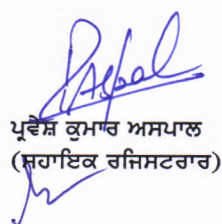 ਪ੍ਰਵੇਸ਼ ਕੁਮਾਰ ਅਸਪਾਲ
(ਸਹਾਇਕ ਰਜਿਸਟਰਾਰ)